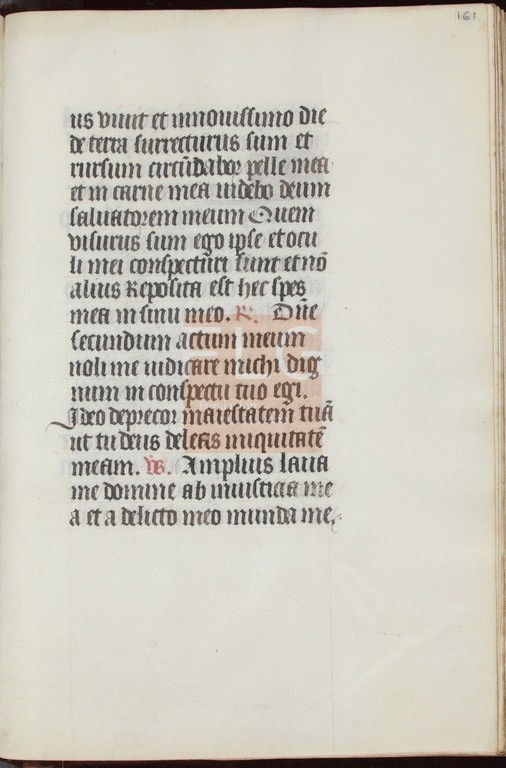 161
us viuit et innouissimo die
de terra surrecturus sum et
rursum circūdabor pelle mea
et in carne mea uidebo deum
saluatorem meum Quem
visurus sum ego ipse et ocu
li mei conspecturi sunt et nō
alius Reposita est hec spes
mea in sinu meo. R. Dn̄e
secundum actum meum
noli me iudicare michi dig
num in conspectu tuo egi.
Ideo deprecor maiestatem tuā
ut tu deus deleas iniquitatē
meam. Vs. Amplius laua
me domine ab iniusticia me
a et a delicto meo munda me.